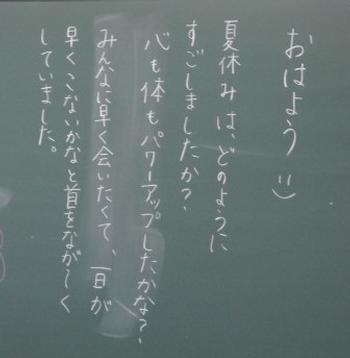 おはよう :)
夏休みは、どのように
すごしましたか?
心も体もパワーアップしたかな?
みんなに早く会いたくて、一日が
早くこないかなと首をなが〜く
していました。